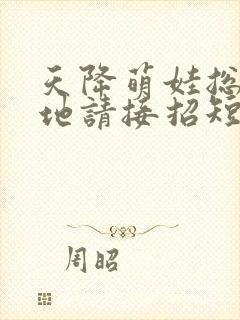 天降萌娃总
地請接招短
周昭